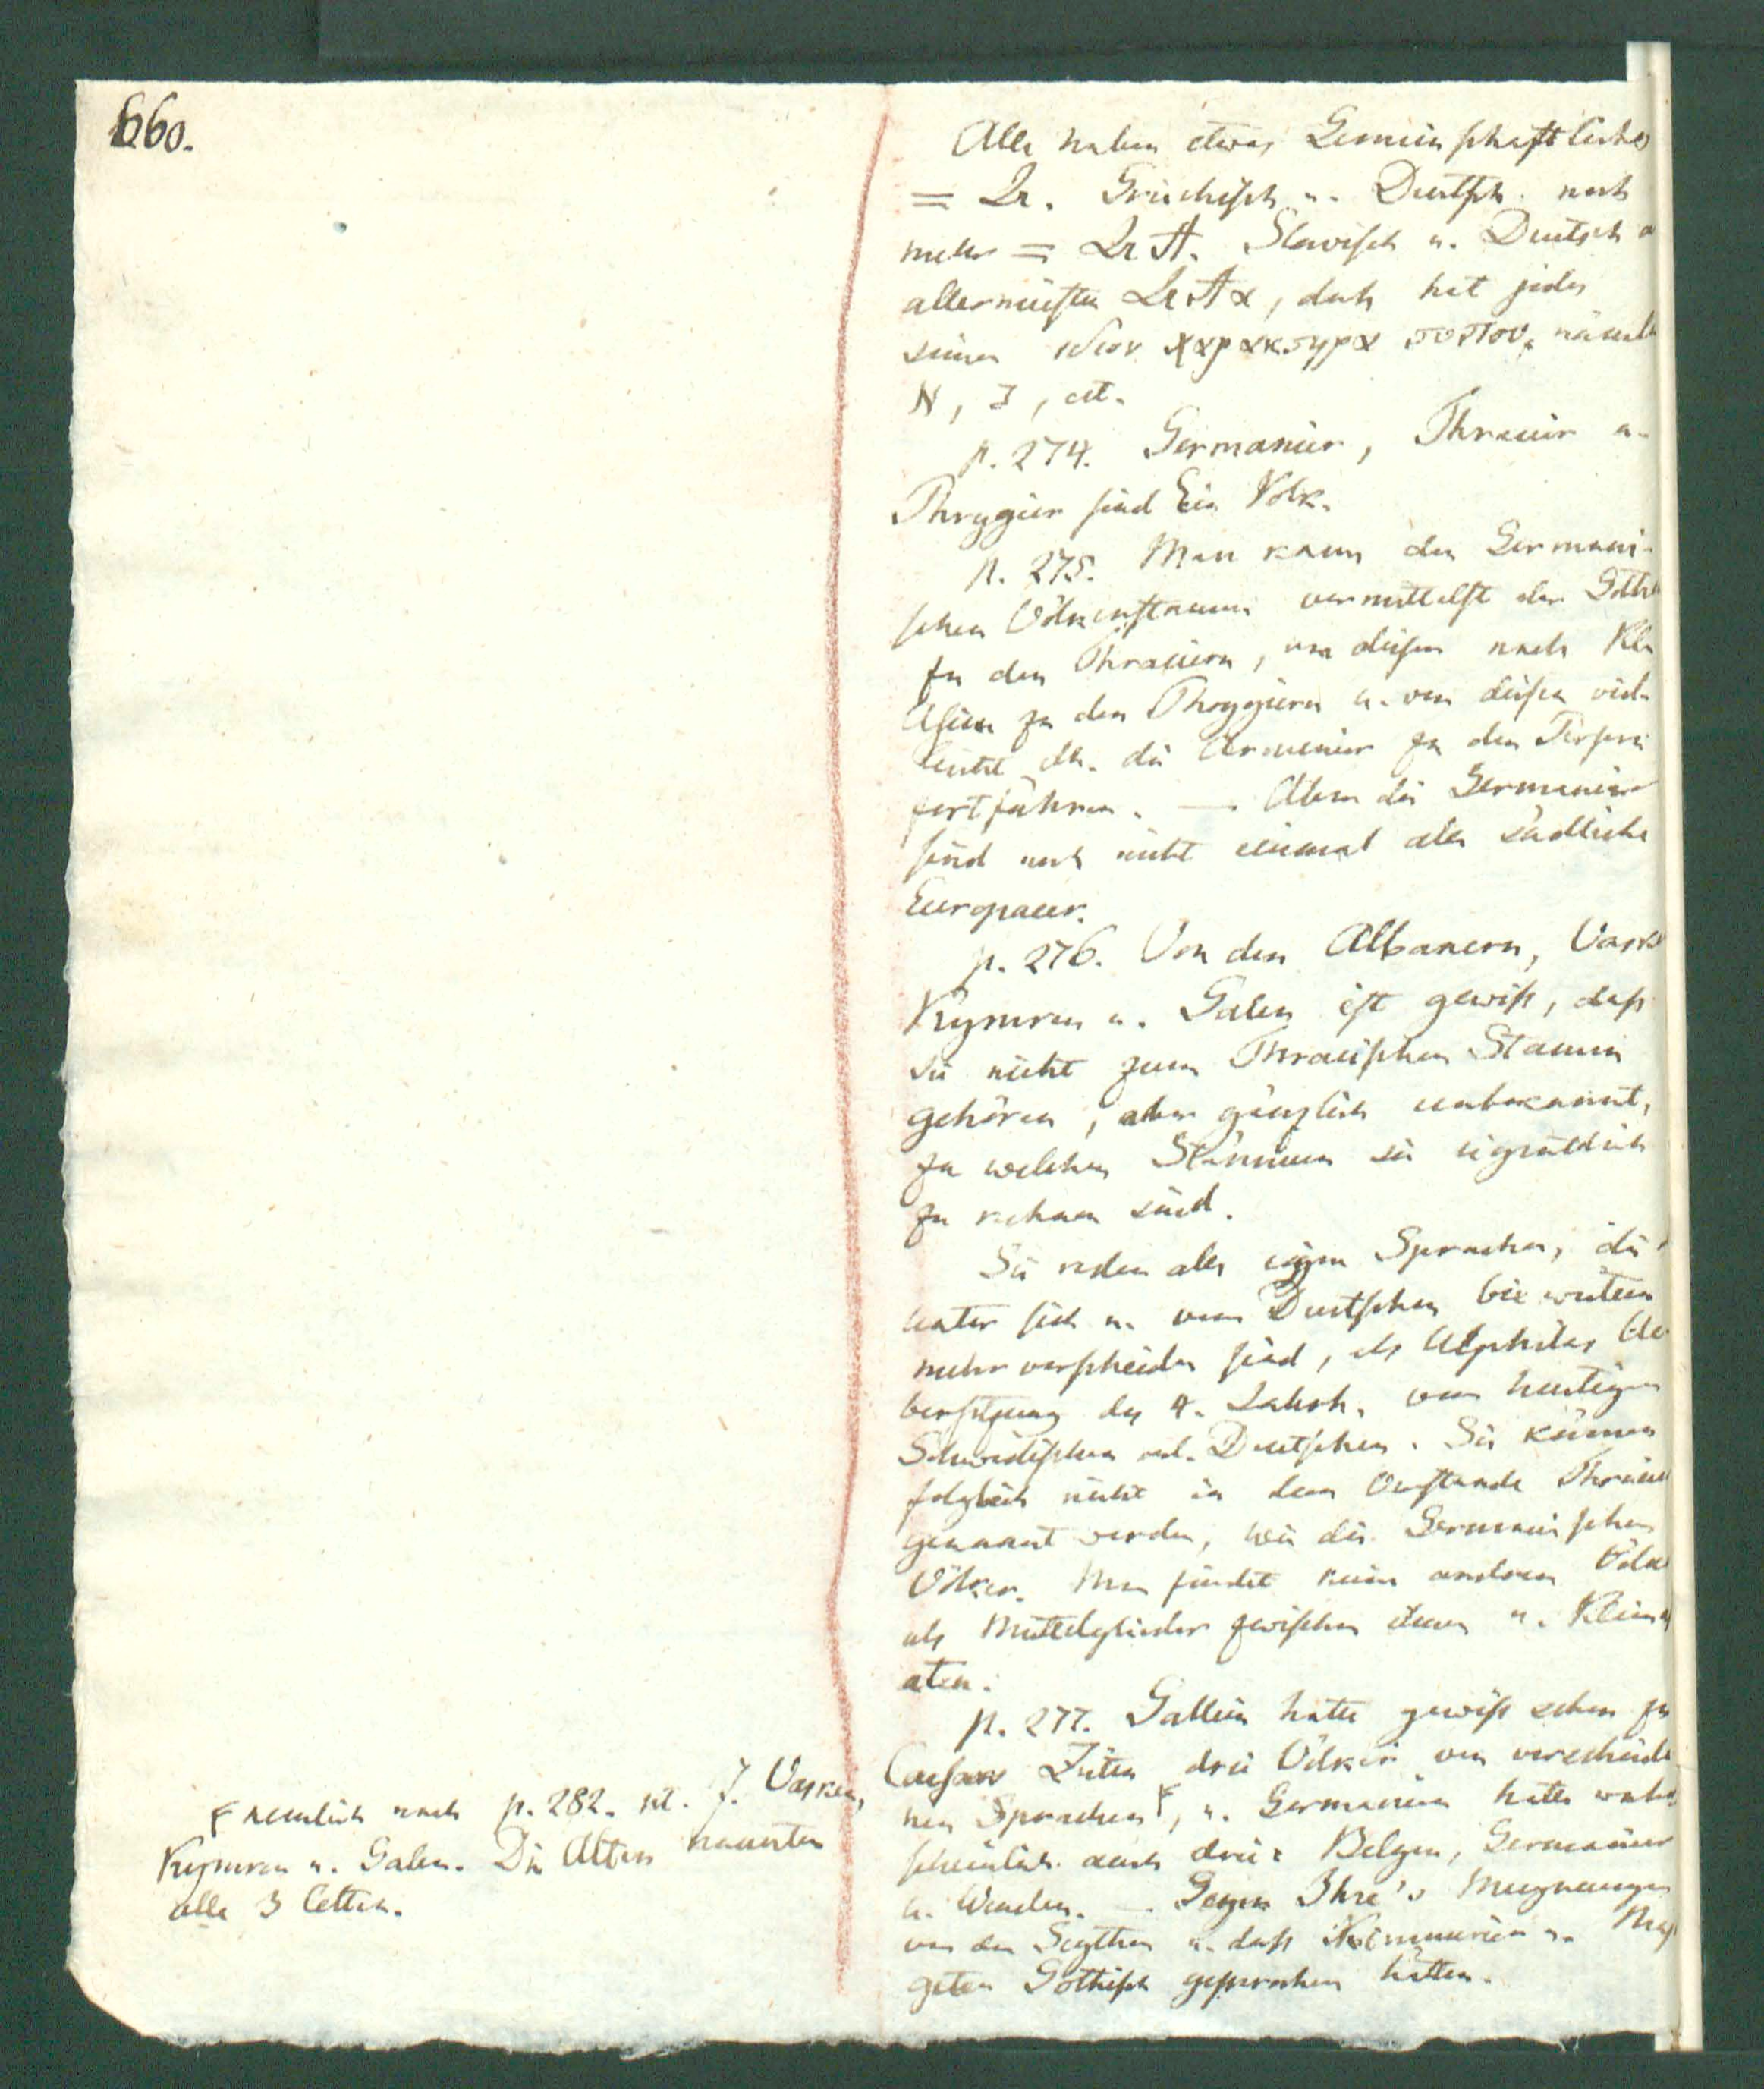 660.
Alle haben etwas Gemeinschaftliches
= Lr. Griechisch u. Deutsch noch
mehr = Lr A. Slavisch u. Deutsch a
allermeisten Lr A α, doch hat jedes
seinen ιδιον χαρακτηρα τουτου, näml
N, I, etc.
p. 274. Germanier, Thracier u.
Phrygier sind Ein Volk.
p. 275. Man kann den Germani-
schen Völkerstamm vermittelst der Gothe
zu den Thraciern, von diesen nach Kle
Asien zu den Phrygiern u. von diesen viel-
leicht dh. die Armenier zu den Persern
fortführen. — Aber die Germanier
sind noch nicht einmal alle südliche
Europaeer.
p. 276. Von den Albanern, Vaske
Kymren u. Galen ist gewiß, daß
sie nicht zum Thracischen Stamm
gehören, aber gänzlich unbekannt,
zu welchen Stämmen sie eigentlich
zu rechnen sind.
Sie reden alle eigene Sprachen, die
unter sich u. vom Deutschen bei weitem
mehr verschieden sind, als Ulphilas Ue
bersetzung des 4. Jahrh. vom heutigen
Schwedischen od. Deutschen. Sie können
folglich nicht in dem Verstande Thracier
genannt werden, wie die Germanischen
Völker. Man findet keine anderen Völke
als Mittelglieder zwischen ihnen u. Kleinas
aten.
p. 277. Gallien hatte gewiß schon zu
Caesars Zeiten drei Völker von verschiede
nen Sprachen F, u. Germanien hatte wahr
scheinlich auch drei: Belgen, Germanier
u. Wenden. — Gegen Ihre's Meynungen
von den Scythen u. daß Kimmerier u. Mas
geten Gothisch gesprochen hätten.
F nemlich nach p. 282. nt. f. Vasken,
Kymren u. Galen. Die Alten nannten
alle 3 Celten.